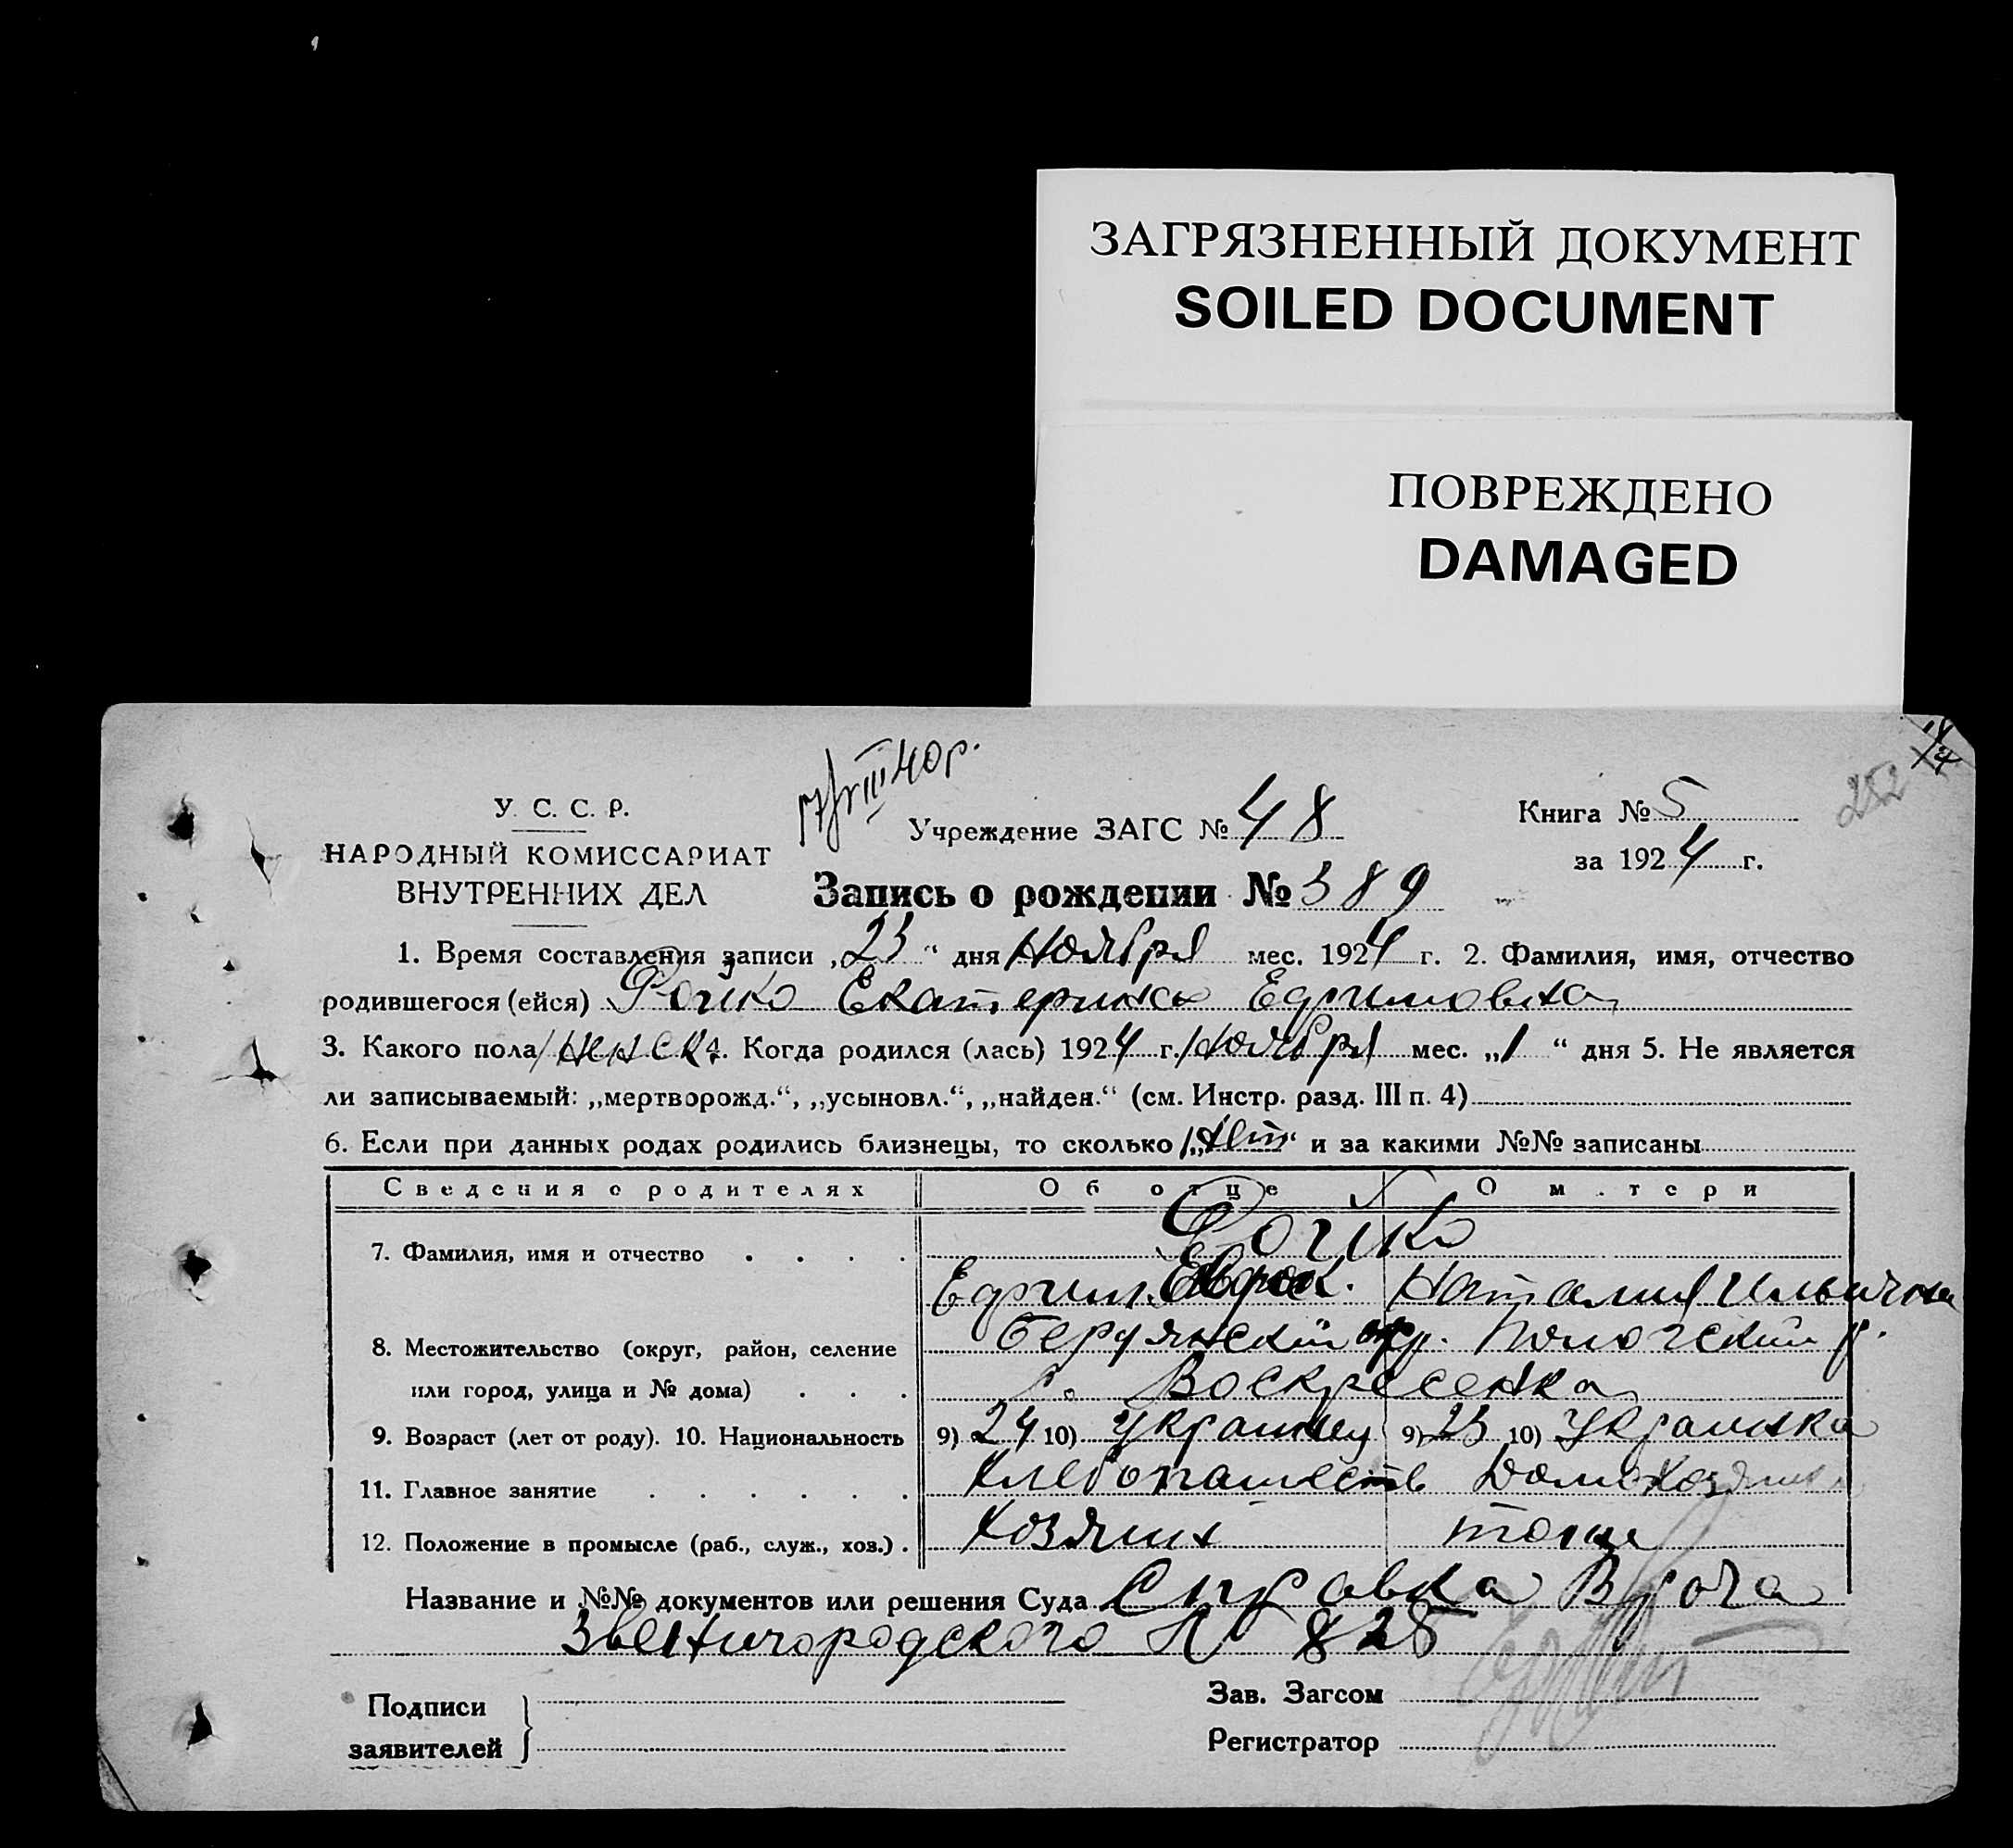 ЗАГРЯЗНЕННЫЙ ДОКУМЕНТ
SOILED DOCUMENT
ПОВРЕЖДЕНО
DAMAGED
252
У. С. С. Р.
НАРОДНЫЙ КОМИССАРИАТ
ВНУТРЕННИХ ДЕЛ
III 40 р.
Учреждение ЗАГС № 48
Книга № 5
за 1924 г.
Запись о рождении № 389
1. Время составления записи „23“ дня Ноября мес. 1924 г. 2. Фамилия, имя, отчество
родившегося (ейся) Екатерина
3. Какого пола женск 4. Когда родился (лась) 1924 г. Ноября мес. „1“ дня 5. Не является
ли записываемый: „мертворожд.“, „усыновл.“, „найден.“ (см. Инстр. разд. III п. 4)
6. Если при данных родах родились близнецы, то сколько „Нет“ и за какими №№ записаны
Сведения о родителях Об отце О матери
7. Фамилия, имя и отчество
Наталия
8. Местожительство (округ, район, селение Бердянский окр. Пологский р.
или город, улица и № дома) с. Воскресенка
9. Возраст (лет от роду). 10. Национальность 9) 24 10) Украинец 9) 23 10) Украинка
11. Главное занятие Хлебопашеств Домохозяйка
12. Положение в промысле (раб., служ., хоз.) Хозяин
Название и №№ документов или решения Суда Справка Врача
Звенигородского № 825
Подписи
заявителей
Зав. Загсом
Регистратор